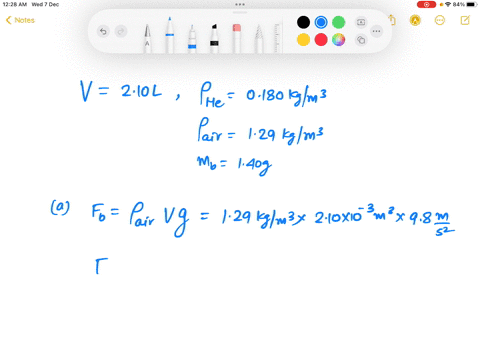 12:28 AM Wed 7 Dec
84%
Notes
V = 2.10L , ρHe = 0.180 kg/m³
ρair = 1.29 kg/m³
mb = 1.40g
(a) Fb = ρair Vg = 1.29 kg/m³ × 2.10×10⁻³ m³ × 9.8 m/s²